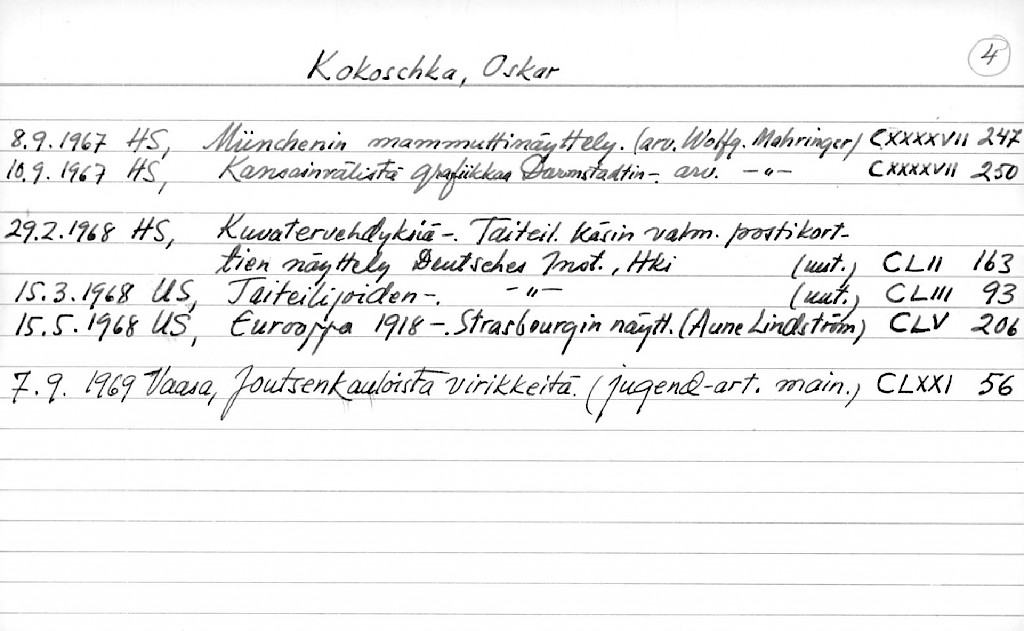 Kokoschka, Oskar 4
8.9.1967 HS, Münchenin mammuttinäyttely. (arv. Wolfg. Mahringer) CXXXXVII 247
10.9.1967 HS, Kansainvälistä grafiikkaa Darmstadtin-. arv. -"- CXXXXVII 250
29.2.1968 HS, Kuvatervehdyksiä-. Taiteil. käsin valm. postikort-
tien näyttely Deutsches Inst., Hki (uut.) CLII 163
15.3.1968 US, Taiteilijoiden-. -"- (uut.) CLIII 93
15.5.1968 US, Eurooppa 1918-. Strasbourgin näytt. (Aune Lindström) CLV 206
7.9. 1969 Vaasa, Joutsenkauloista virikkeitä. (jugend-art. main.) CLXXI 56